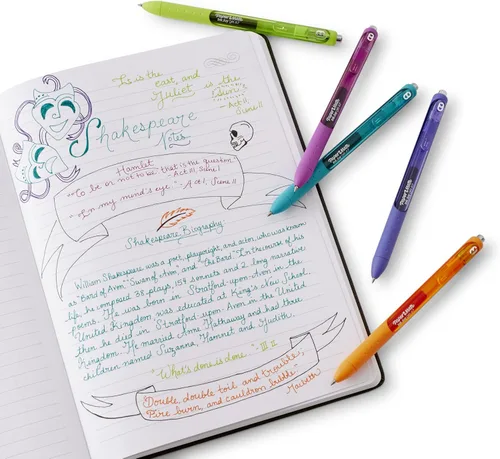 It is the east, and
Juliet is the
"Sun"
- Act II,
Scene II
Shakespeare
Notes
Hamlet
"To be or not to be that is the question"
- Act III, Scene I
"In my mind's eye" - Act I, Scene II
Shakespeare Biography:
William Shakespeare was a poet, playwright, and actor, who was known
as "Bard of Avon," "Swan of Avon," and "The Bard." In the course of his
life, he composed 38 plays, 154 sonnets and 2 long narrative
poems. He was born in Stratford-upon-Avon in the
United Kingdom was educated at King's New School.
then he died in Stratford-upon-Avon in the United
Kingdom. He married Anne Hathaway and had three
children named Suzanna, Hamnet and Judith.
"What's done is done." III.II
"Double, double toil and trouble,
Fire burn, and cauldron bubble"
Macbeth
Paper Mate
Paper Mate
Paper Mate
Paper Mate